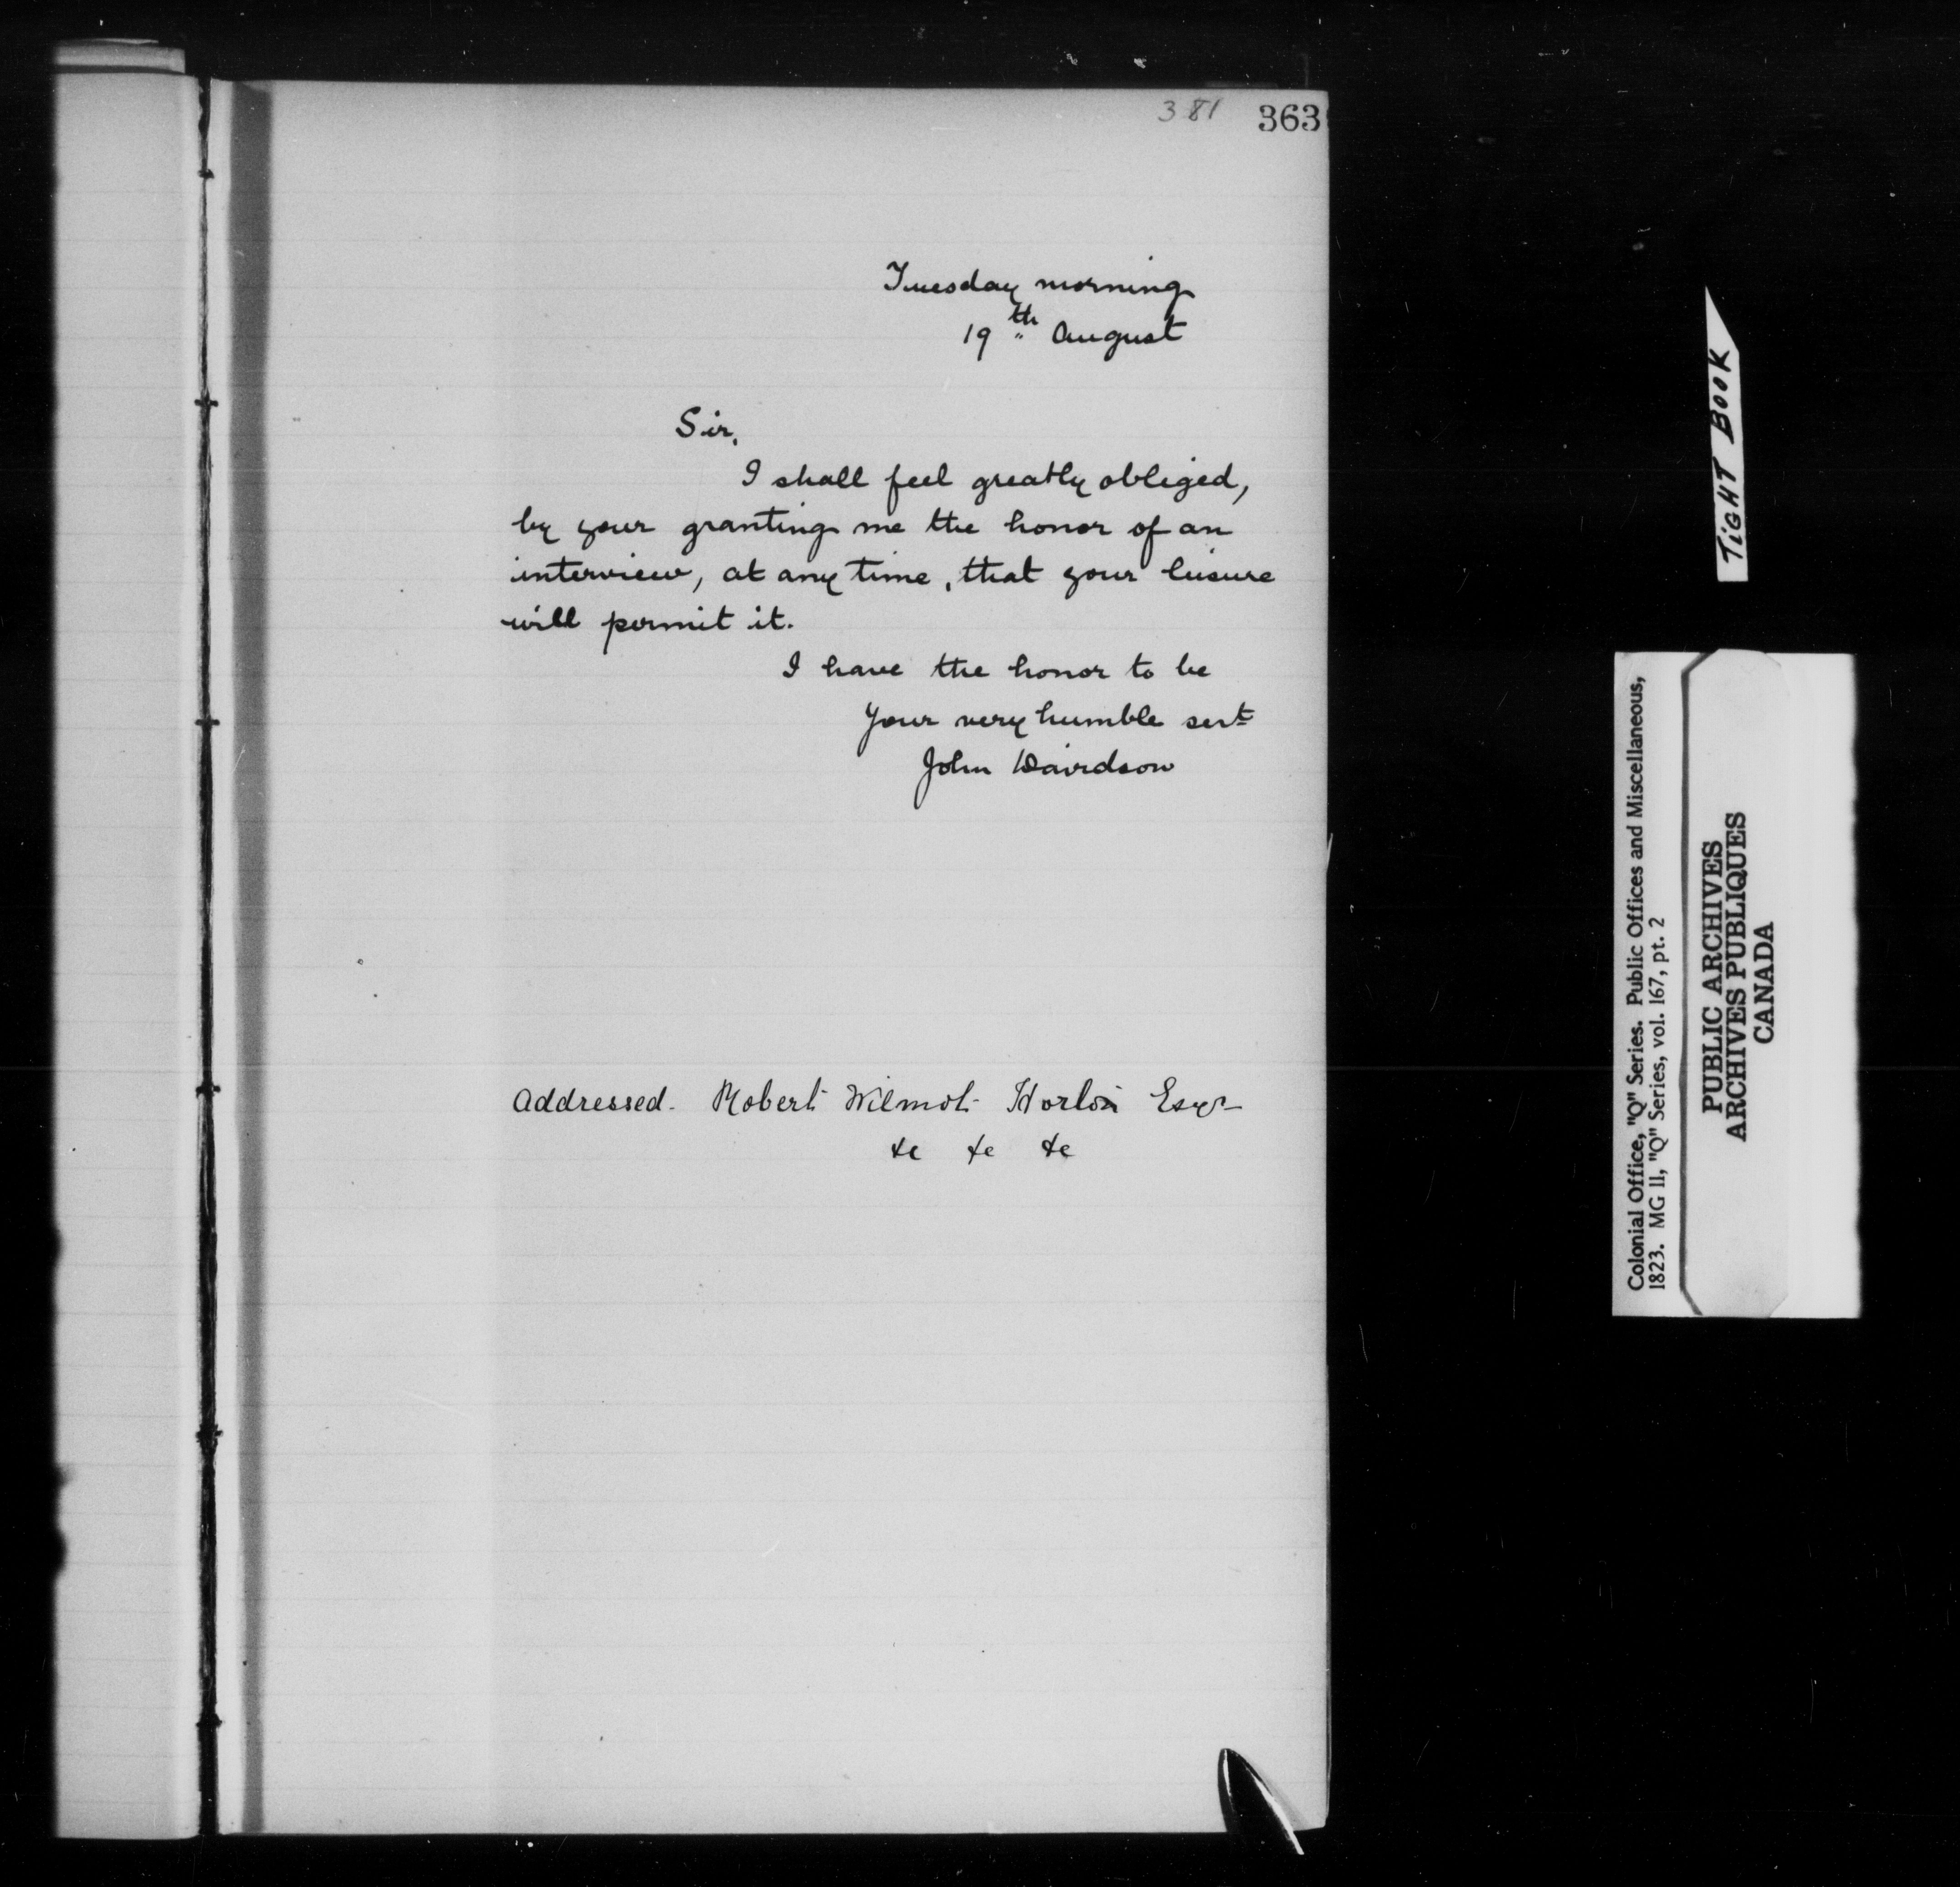 381 363
Tuesday morning
19th August
Sir,
I shall feel greatly obliged,
by your granting me the honor of an
interview, at any time, that your leisure
will permit it.
I have the honor to be
Your very humble servt
John Davidson
Addressed. Robert Wilmot Horton Esqr
&c &c &c
TiGHT BOOK
Colonial Office, "Q" Series. Public Offices and Miscellaneous,
1823. MG 11, "Q" Series, vol. 167, pt. 2
PUBLIC ARCHIVES
ARCHIVES PUBLIQUES
CANADA